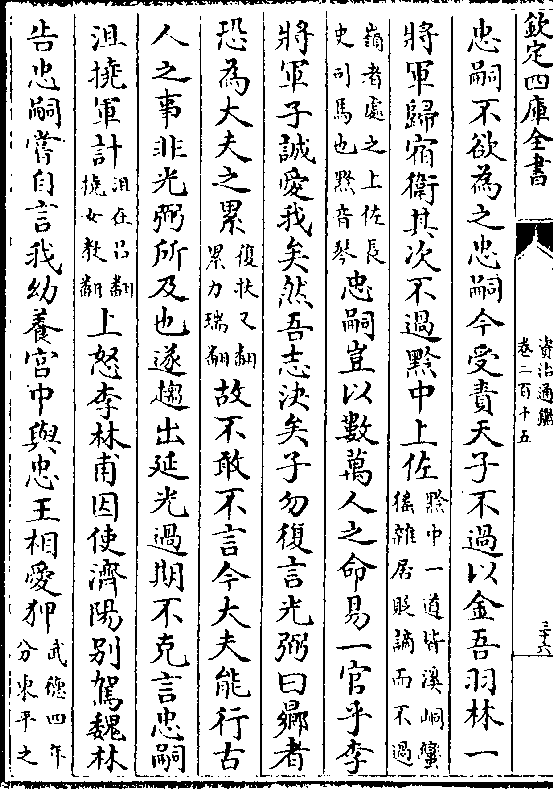 欽定四庫全書
資治通鑑
卷二百十五
三十六
忠嗣不欲為之忠嗣今受責天子不過以金吾羽林一
將軍歸宿衛其次不過黔中上佐黔中一道皆溪峒蠻
猺雜居貶謫而不過
嶺者處之上佐長
史司馬也黔音琴忠嗣豈以數萬人之命易一官乎李
將軍子誠愛我矣然吾志決矣子勿復言光弼曰曏者
恐為大夫之累復扶又翻
累力瑞翻故不敢不言今大夫能行古
人之事非光弼所及也遂趨出延光過期不克言忠嗣
沮撓軍計沮在吕翻
撓女教翻上怒李林甫因使濟陽别駕魏林
告忠嗣嘗自言我幼養宫中與忠王相愛狎武德四年
分東平之